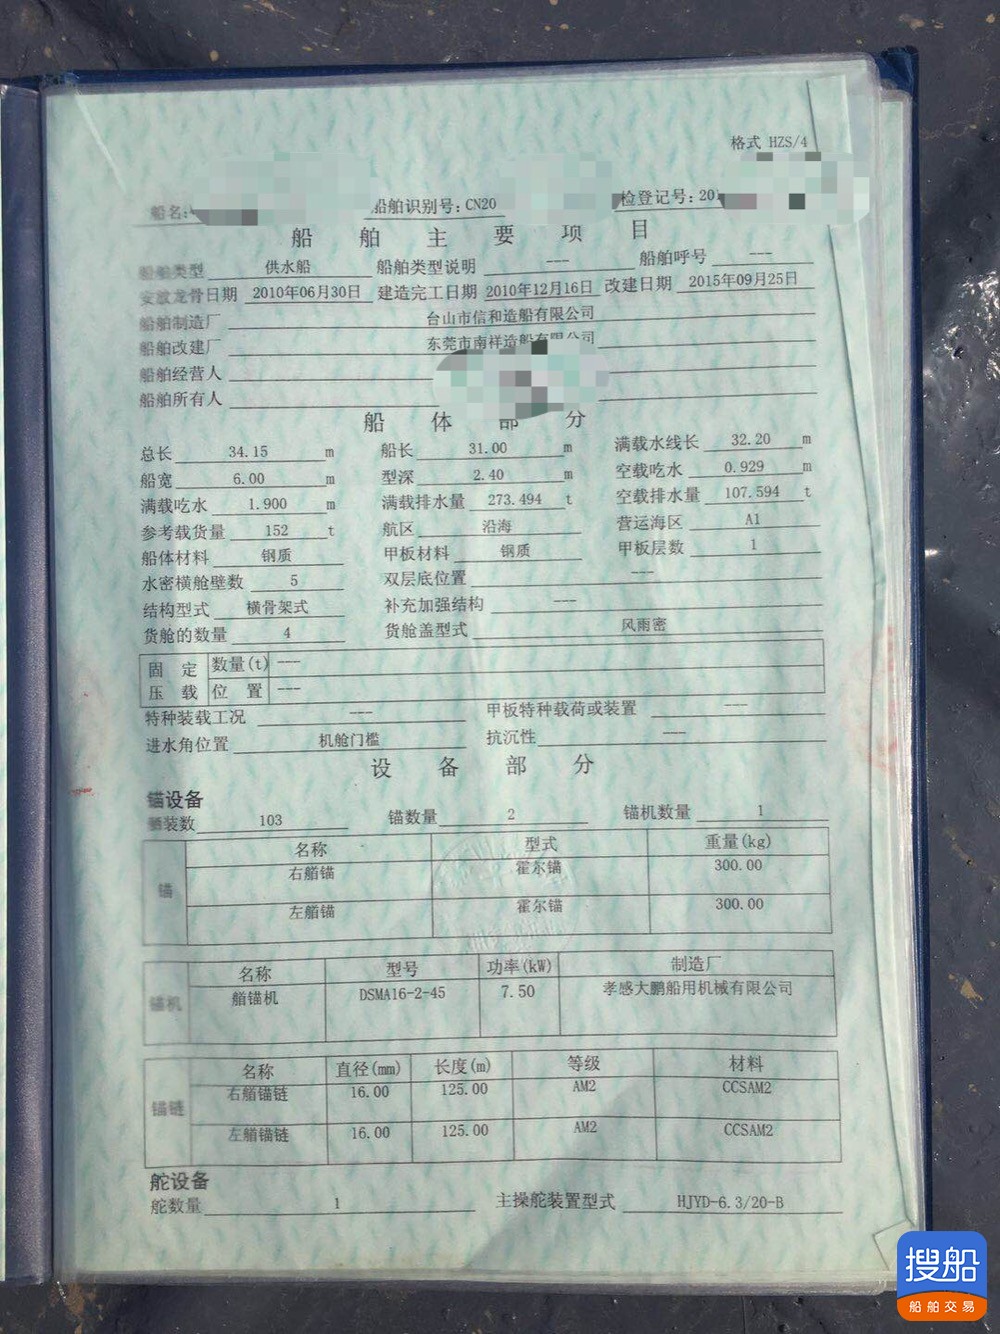 格式 HZS/4
船名: 船舶识别号:CN20 检登记号:201
船舶主要项目
船舶类型 供水船 船舶类型说明 --- 船舶呼号 ---
安放龙骨日期 2010年06月30日 建造完工日期 2010年12月16日 改建日期 2015年09月25日
船舶制造厂 台山市信和造船有限公司
船舶改建厂 东莞市南祥造船有限公司
船舶经营人
船舶所有人
船体部分
总长 34.15 m 船长 31.00 m 满载水线长 32.20 m
船宽 6.00 m 型深 2.40 m 空载吃水 0.929 m
满载吃水 1.900 m 满载排水量 273.494 t 空载排水量 107.594 t
参考载货量 152 t 航区 沿海 营运海区 A1
船体材料 钢质 甲板材料 钢质 甲板层数 1
水密横舱壁数 5 双层底位置 ---
结构型式 横骨架式 补充加强结构 ---
货舱的数量 4 货舱盖型式 风雨密
固定 数量(t) ---
压载 位置 ---
特种装载工况 --- 甲板特种载荷或装置 ---
进水角位置 机舱门槛 抗沉性 ---
设备部分
锚设备
舾装数 103 锚数量 2 锚机数量 1
名称 型式 重量(kg)
锚 右艏锚 霍尔锚 300.00
左艏锚 霍尔锚 300.00
名称 型号 功率(kW) 制造厂
锚机 艏锚机 DSMA16-2-45 7.50 孝感大鹏船用机械有限公司
名称 直径(mm) 长度(m) 等级 材料
锚链 右艏锚链 16.00 125.00 AM2 CCSAM2
左艏锚链 16.00 125.00 AM2 CCSAM2
舵设备
舵数量 1 主操舵装置型式 HJYD-6.3/20-B
搜船
船舶交易